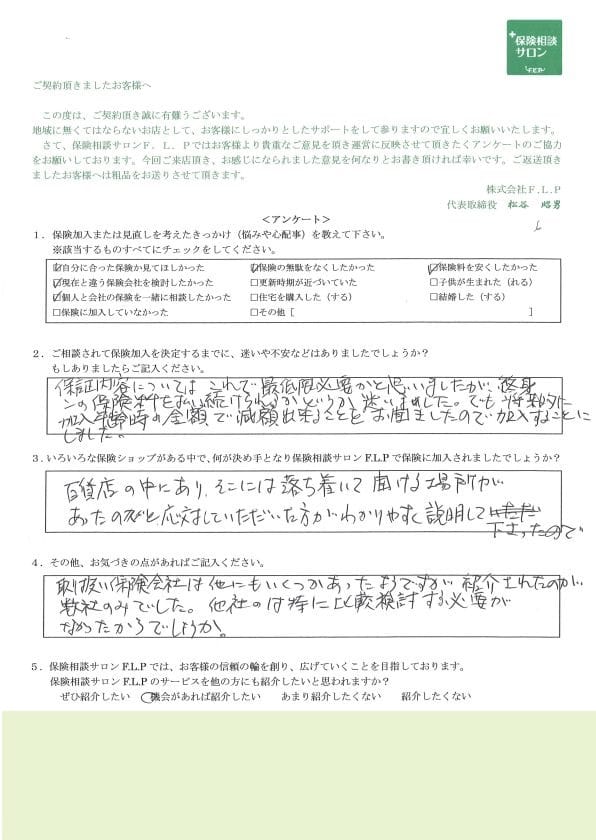 +保険相談
サロン
F.L.P
ご契約頂きましたお客様へ
この度は、ご契約頂き誠に有難うございます。
地域に無くてはならないお店として、お客様にしっかりとしたサポートをして参りますので宜しくお願いいたします。
さて、保険相談サロンF．L．Pではお客様より貴重なご意見を頂き運営に反映させて頂きたくアンケートのご協力
をお願いしております。今回ご来店頂き、お感じになられました意見を何なりとお書き頂ければ幸いです。ご返送頂き
ましたお客様へは粗品をお送りさせて頂きます。
株式会社F.L.P
代表取締役 松谷 昭男
<アンケート>
1．保険加入または見直しを考えたきっかけ（悩みや心配事）を教えて下さい。
※該当するものすべてにチェックをしてください。
☑自分に合った保険か見てほしかった ☑保険の無駄をなくしたかった ☑保険料を安くしたかった
☑現在と違う保険会社を検討したかった □更新時期が近づいていた □子供が生まれた（れる）
☑個人と会社の保険を一緒に相談したかった □住宅を購入した（する） □結婚した（する）
□保険に加入していなかった □その他［ ］
2．ご相談されて保険加入を決定するまでに、迷いや不安などはありましたでしょうか？
もしありましたらご記入ください。
保証内容については これで最低限必要かと思いましたが、終身
この保険料を払い続けられるかどうか 迷いました。でも 将来的に
加入年齢時の金額で減額出来ることをお聞きしましたので 加入することに
しました。
3．いろいろな保険ショップがある中で、何が決め手となり保険相談サロンF.L.Pで保険に加入されましたでしょうか？
百貨店の中にあり、そこには落ち着いて聞ける場所が
あったのと応対していただいた方がわかりやすく説明して
下さったので
4．その他、お気づきの点があればご記入ください。
取り扱い保険会社は他にもいくつかあったようですが 紹介されたのが、
数社のみでした。他社のは特に比較検討する必要が
なかったからでしょうか。
5．保険相談サロンF.L.Pでは、お客様の信頼の輪を創り、広げていくことを目指しております。
保険相談サロンF.L.Pのサービスを他の方にも紹介したいと思われますか？
ぜひ紹介したい 機会があれば紹介したい あまり紹介したくない 紹介したくない